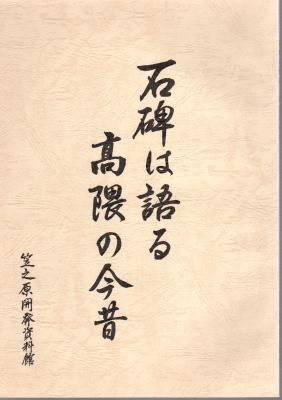 石碑は語る
高隈の今昔
笠之原開発資料館